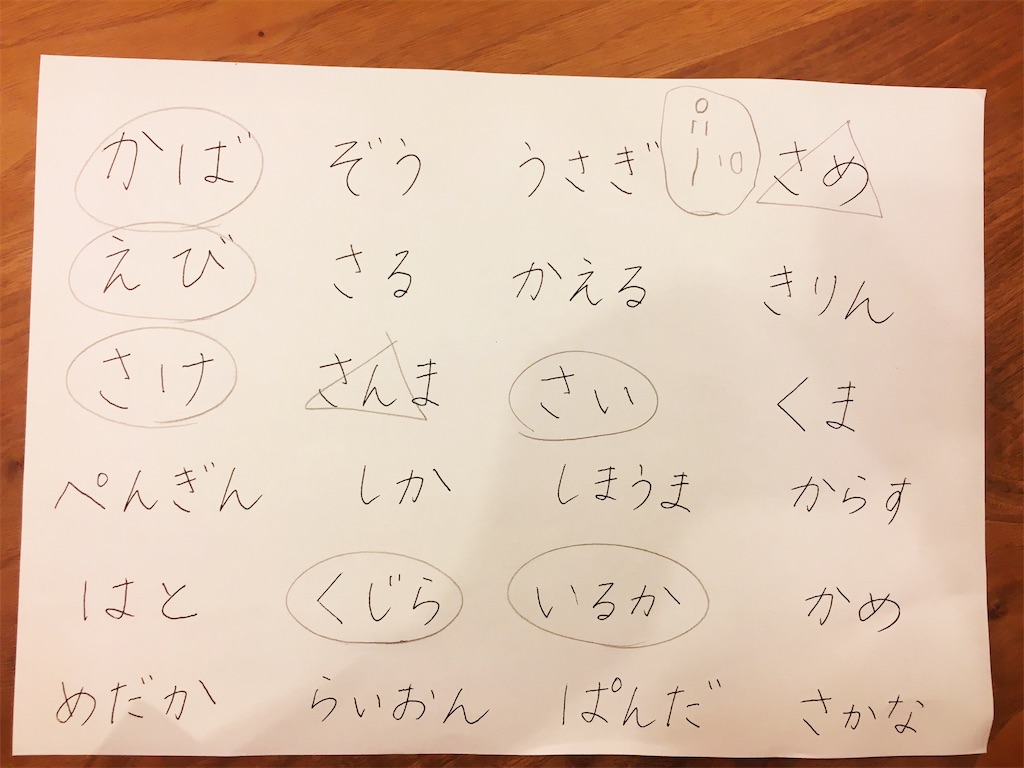 かば ぞう うさぎ さめ
えび さる かえる きりん
さけ さんま さい くま
ぺんぎん しか しまうま からす
はと くじら いるか かめ
めだか らいおん ぱんだ さかな